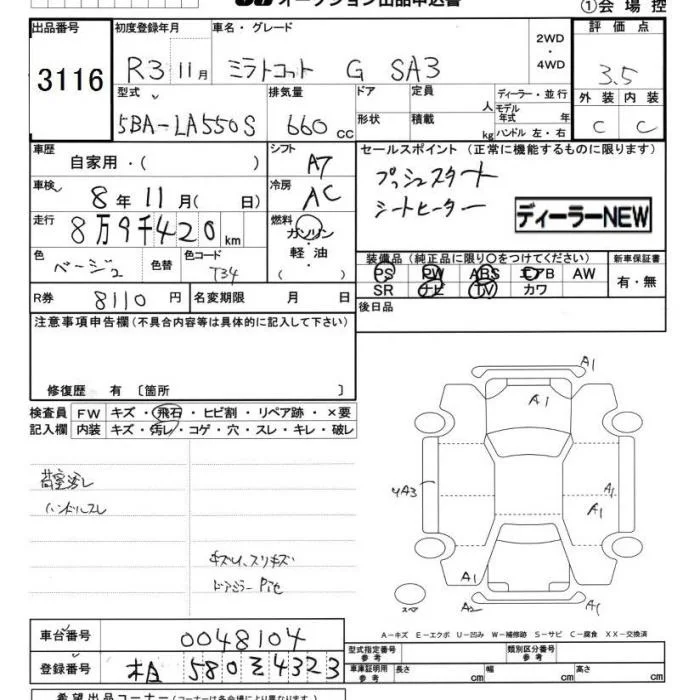 オークション出品申込書
①会場控
出品番号 初度登録年月 車名・グレード 2WD・4WD 評価点
3116 R3 11月 ミラトコット G SA3 3.5
型式 排気量 ドア 定員 人 ディーラー・並行 外装 内装
5BA-LA550S 660cc 形状 積載 kg モデル年式 年 ハンドル 左・右 C C
車歴 自家用・( ) シフト A7 セールスポイント(正常に機能するものに限ります)
車検 8年11月( 日) 冷房 AC プッシュスタート
走行 8万9千420km 燃料 ガソリン・軽油・( ) シートヒーター
ディーラーNEW
色 ベージュ 色替 色コード T34 装備品(純正品に限り○をつけてください) 新車保証書
PS PW ABS エアB AW 有・無
R券 8110円 名変期限 月 日 SR ナビ TV カワ
注意事項申告欄(不具合内容等は具体的に記入して下さい) 後日品
修復歴 有〔箇所 〕
検査員記入欄 FW キズ・飛石・ヒビ割・リペア跡・×要
内装 キズ・汚レ・コゲ・穴・スレ・キレ・破レ
荷室汚レ
ハンドルスレ
キズ凹、スリキズ
ドアミラー
A1
A1
UA3 A1
A1
A1 A1
スペア A2
A-キズ E-エクボ U-凹み W-補修跡 S-サビ C-腐食 XX-交換済
車台番号 0048104 型式指定番号 参考 類別区分番号 参考
登録番号 580 4323 車庫証明用 参考 長さ cm 幅 cm 高さ cm
希望出品コーナー(コーナーは各会場により異なります)